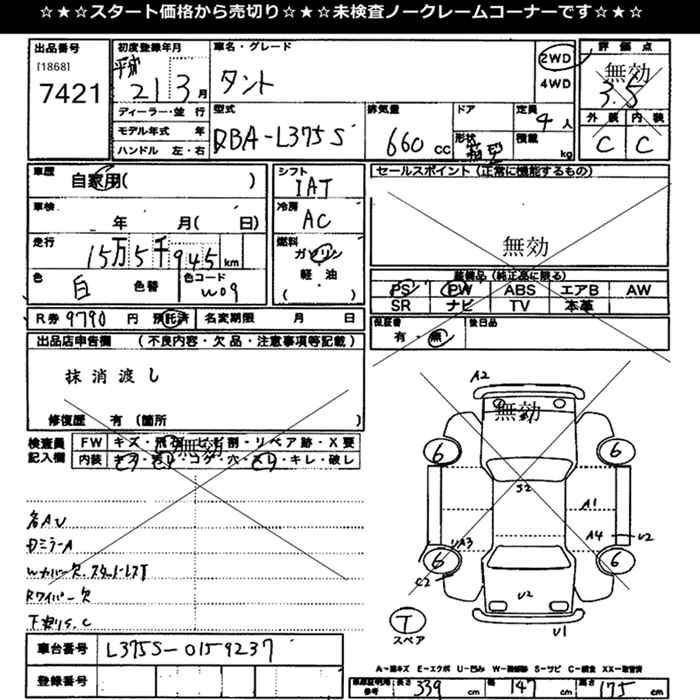 ☆★☆スタート価格から売切り☆★☆未検査ノークレームコーナーです☆★☆
出品番号
[1868]
7421
初度登録年月
平成
21 3月
ディーラー・並行
モデル年式 年
ハンドル 左・右
車名・グレード
タント
2WD
4WD
型式
DBA-L375S
排気量
660 CC
ドア
形状
箱型
定員
4人
積載
kg
評価点
無効
3.5
外装 内装
C C
車歴
自家用( )
車検
年 月( 日)
走行
15万5千945km
色
白
色替
色コード
W09
シフト
IAT
冷房
AC
燃料
ガソリン
軽・油
( )
セールスポイント(正常に機能するもの)
無効
装備品(純正品に限る)
PS PW ABS エアB AW
SR ナビ TV 本革
R券 9790 円 預託済 名変期限 月 日
保証書
有・無
後日品
出品店申告欄 (不良内容・欠品・注意事項等記載)
抹消渡し
修復歴 有(箇所 )
検査員
記入欄
FW キズ・飛石・ヒビ割・リペア跡・X要
内装 キズ・汚レ・コゲ・穴・スレ・キレ・破レ
無効
各AU
Wカバー欠.スタットレス
Rワイパー欠
下廻りS.C
車台番号
L375S-0159237
登録番号
A2
無効
6 6
S2
A1
A3
A4
U2
6 6
C2
U2
U1
T
スペア
A-線キズ E-エクボ U-凹み W-補修跡 S-サビ C-腐食 XX-取替済
車庫証明用
参考
長さ 339 cm
幅 147 cm
高さ 175 cm